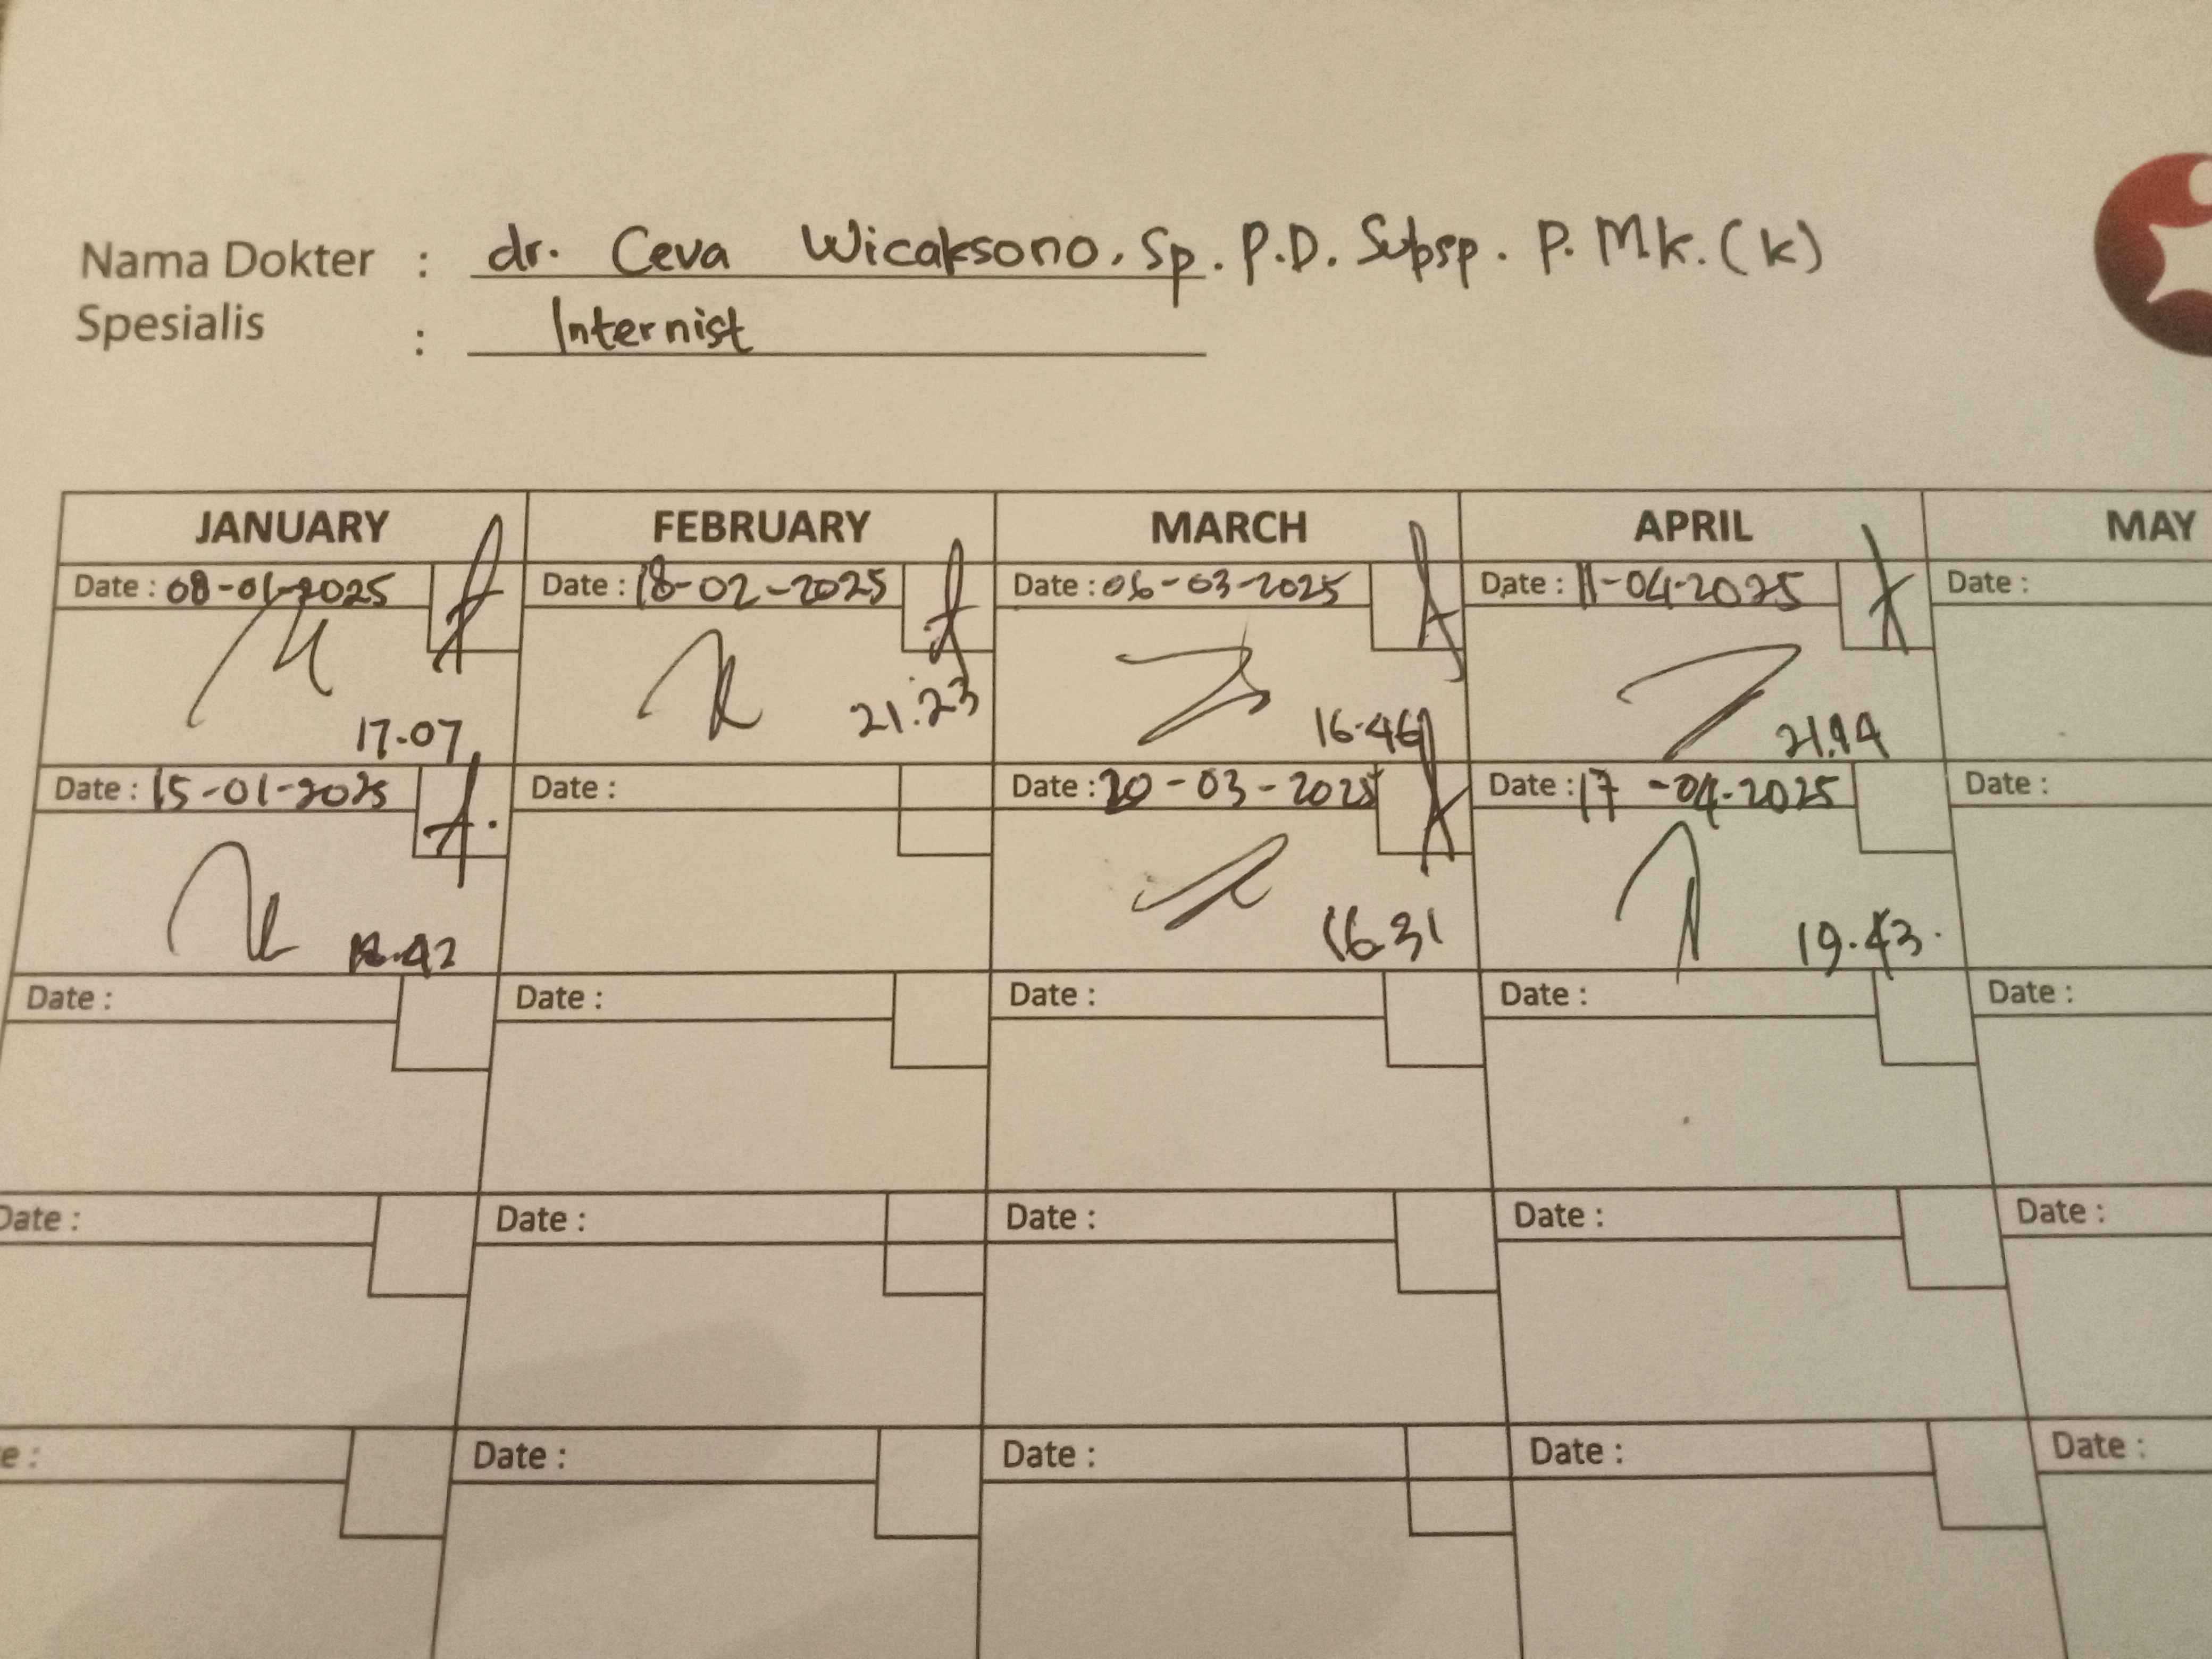 Nama Dokter : dr. Ceva Wicaksono, Sp. P.D. Subsp. P. M.K. (K)
Spesialis : Internist
JANUARY FEBRUARY MARCH APRIL MAY
Date : 08-01-2025 Date : 18-02-2025 Date : 06-03-2025 Date : 11-04-2025 Date :
17.07 21.23 16.46
Date : 15-01-2025 Date : Date : 20-03-2025 Date : 17-04-2025 Date :
16.31 19.43.
Date : Date : Date : Date : Date :
Date : Date : Date : Date : Date :
e : Date : Date : Date : Date :